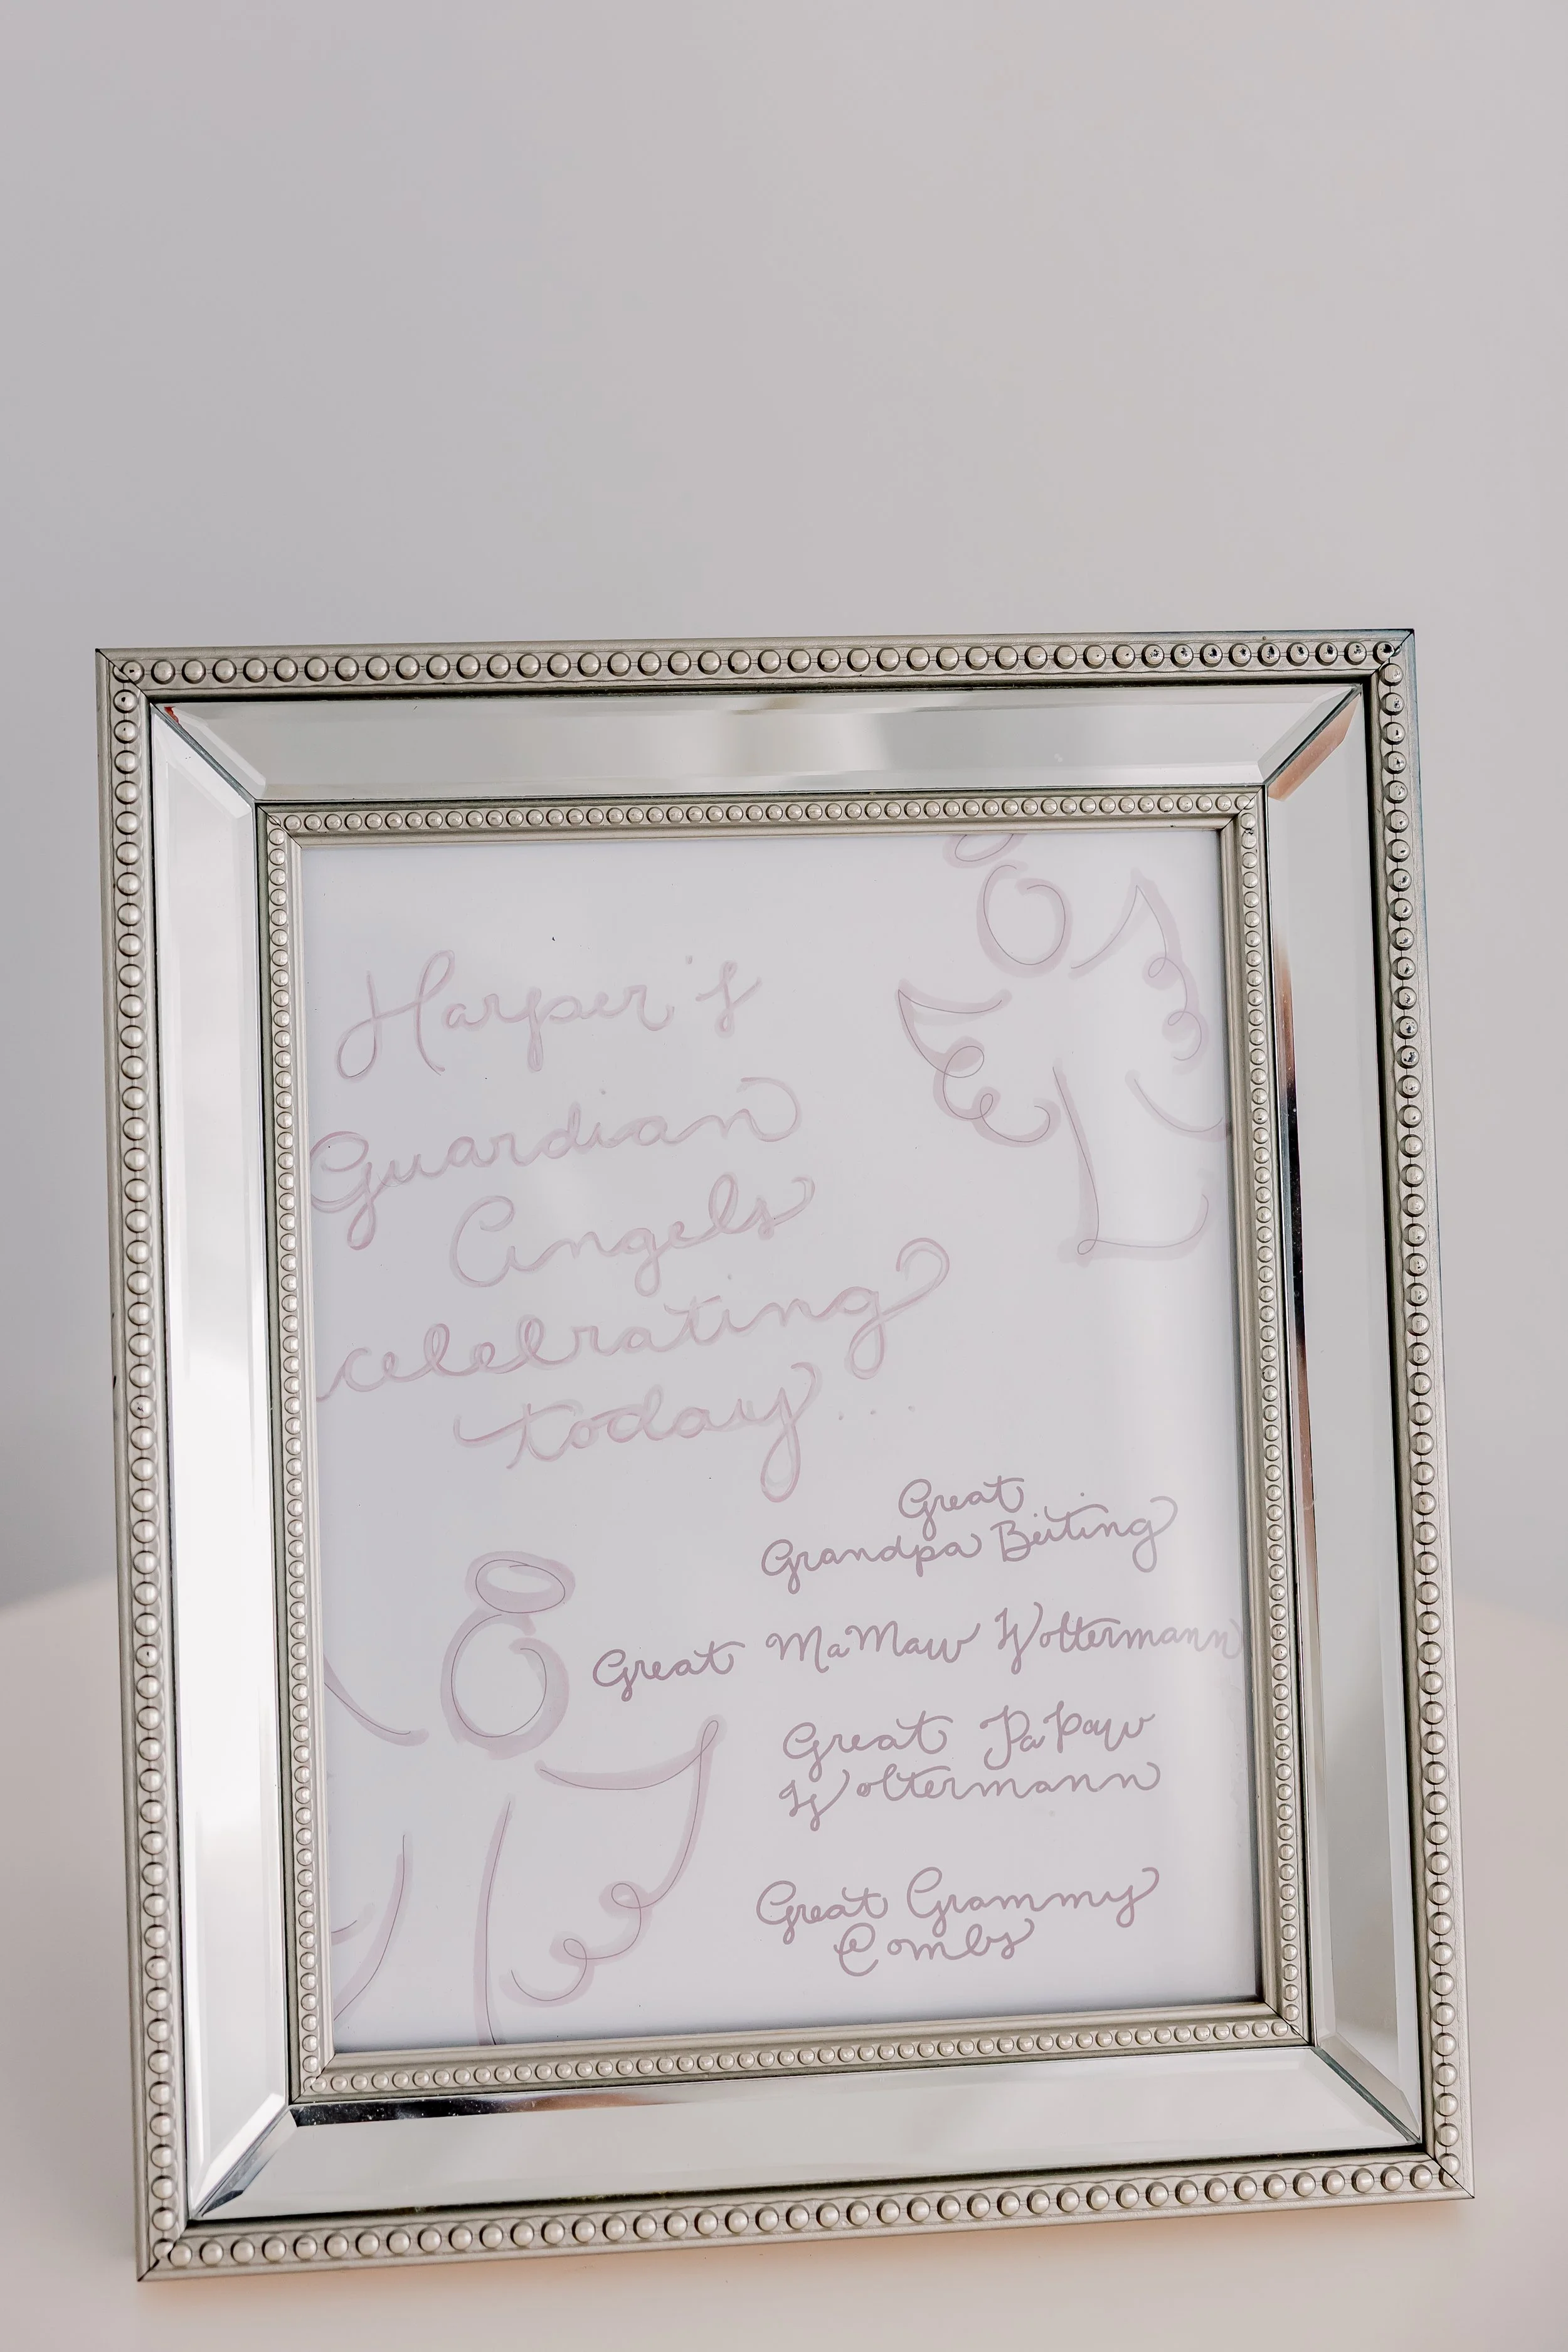 Harper's
Guardian
Angels
celebrating
today...
Great
Grandpa Beiting
Great MaMaw Woltermann
Great PaPaw
Woltermann
Great Grammy
Combs